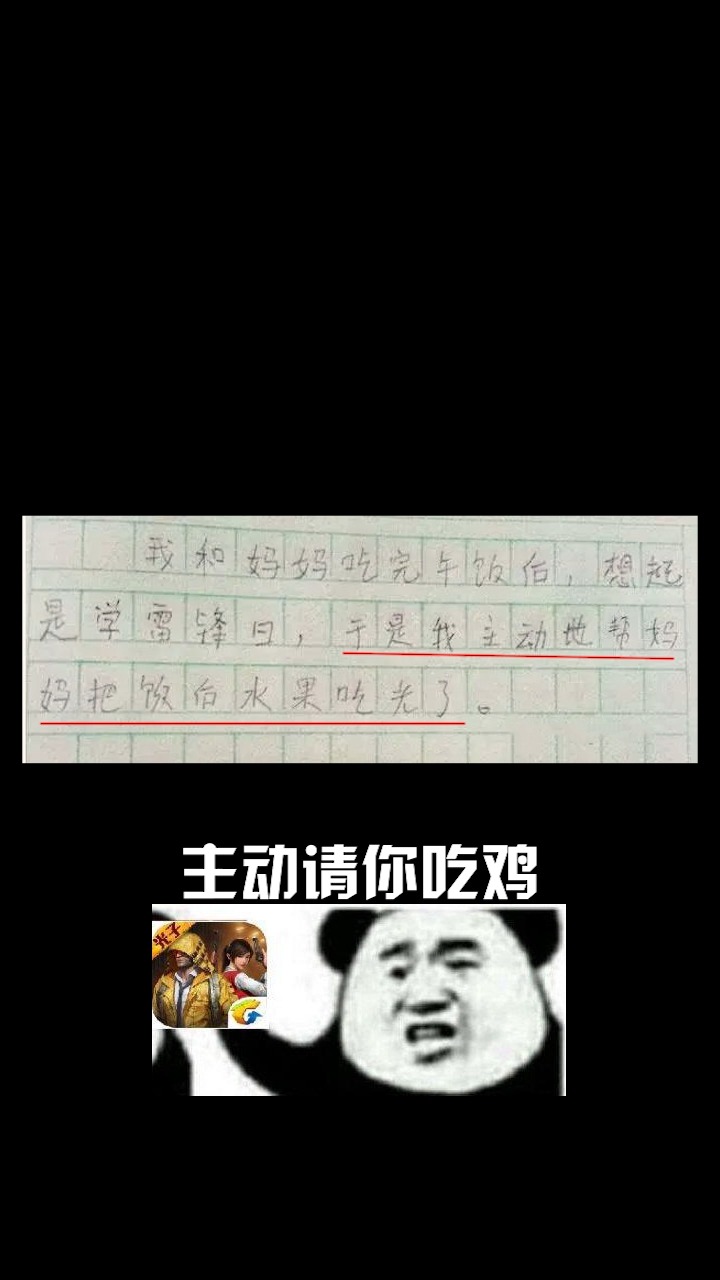 我和妈妈吃完午饭后，想起
是学雷锋日，于是我主动地帮妈
妈把饭后水果吃光了。
主动请你吃鸡
光子